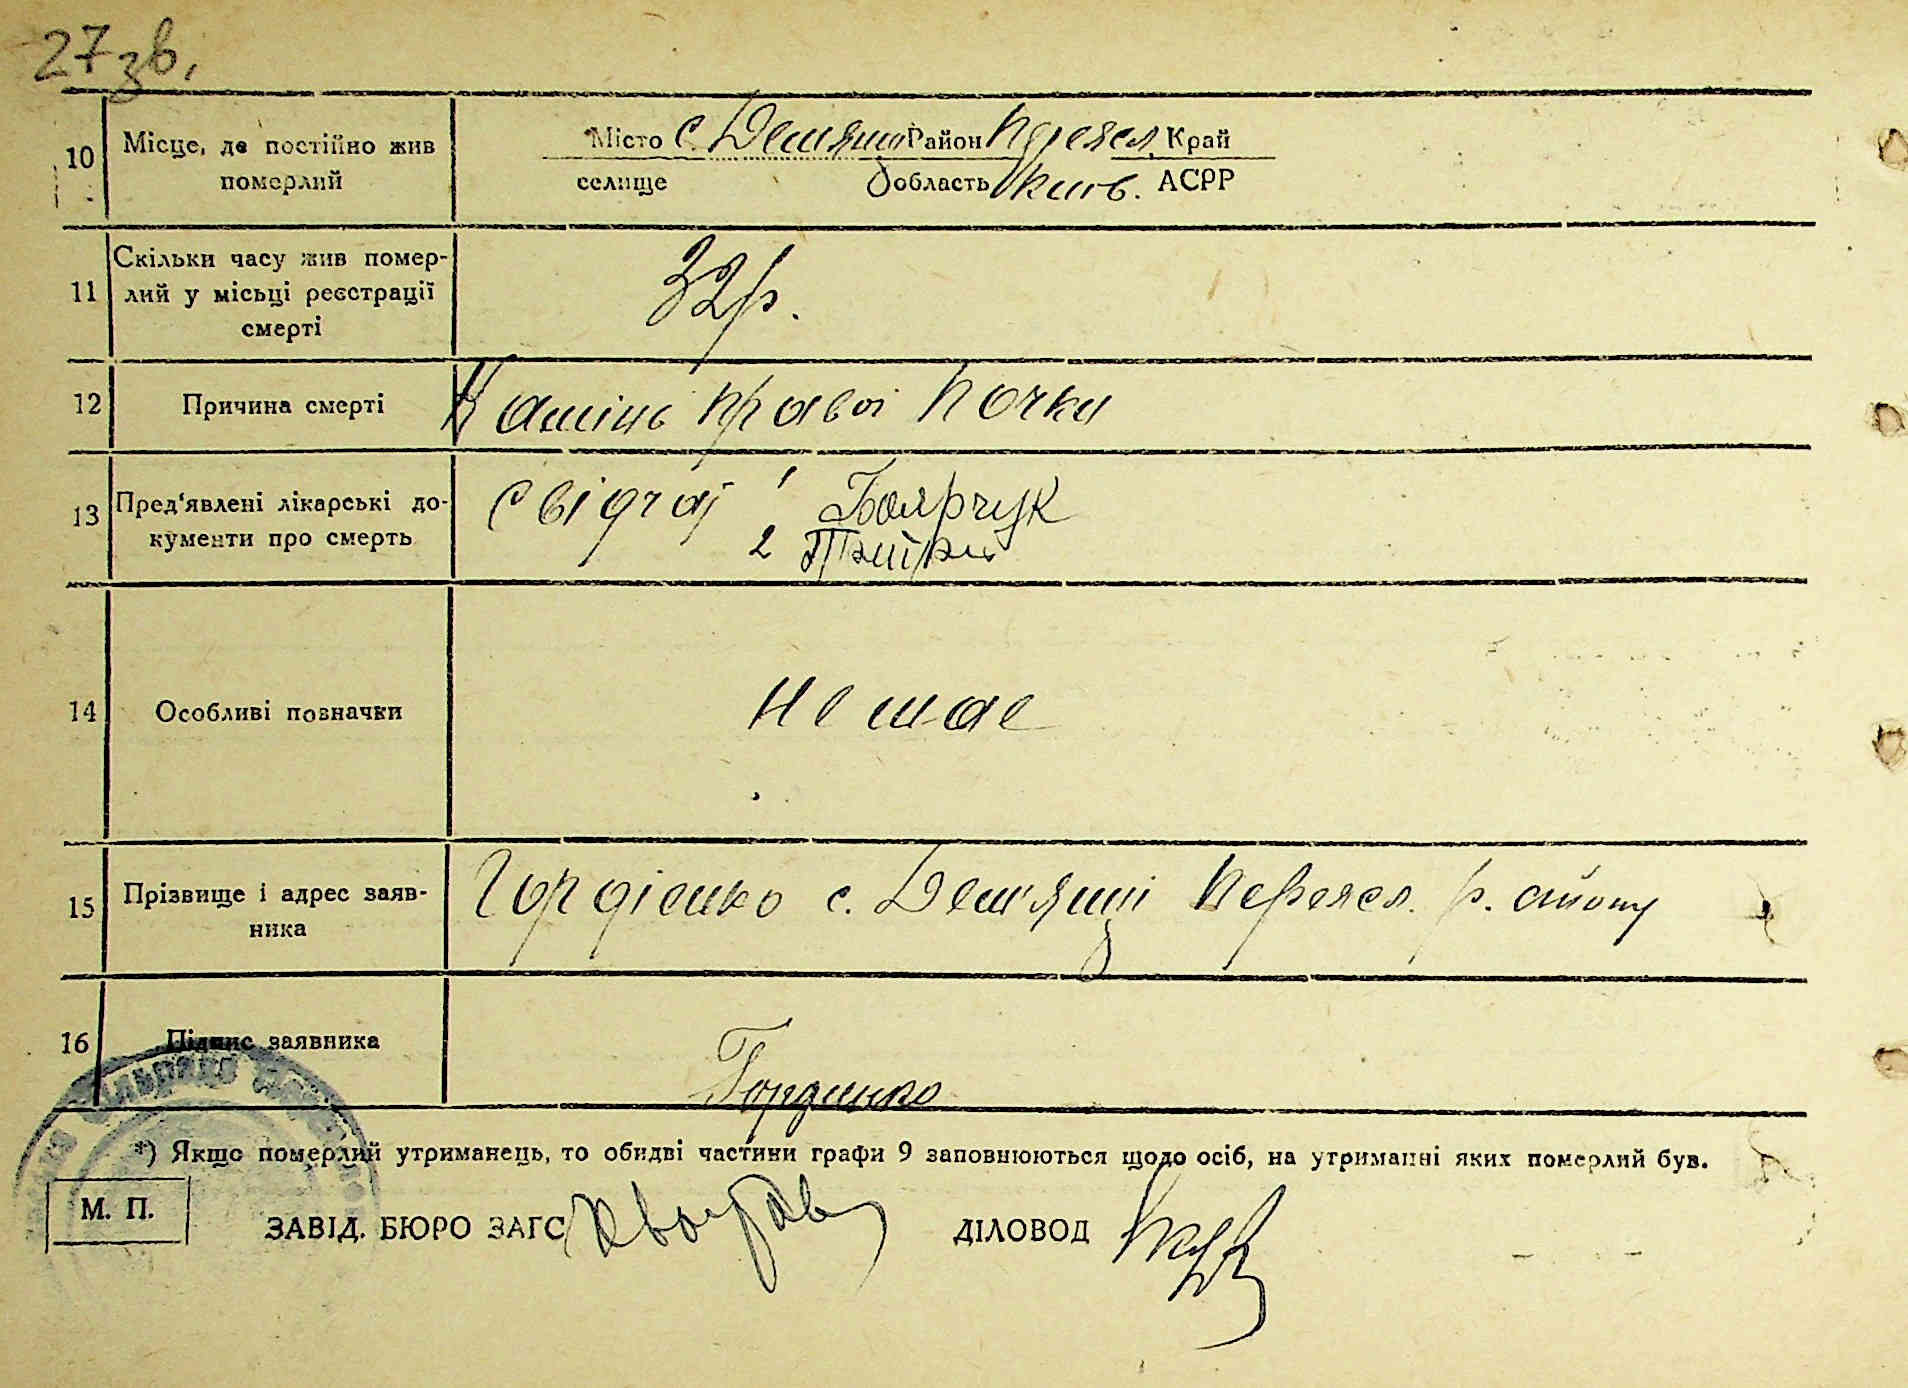 27зв.
10 Місце, де постійно жив померлий
Місто с. Дем'янці Район Переясл. Край
селище область Київ. АСРР
11 Скільки часу жив помер-
лий у місьці реєстрації
смерті
32 р.
12 Причина смерті Камінь правої почки
13 Пред'явлені лікарські до-
кументи про смерть
Свідчай 1 Боярчук
2
14 Особливі позначки не має
15 Прізвище і адрес заяв-
ника
Гордієнко с. Дем'янці Переясл. р. айону
16 Підпис заявника
Гордиенко
*) Якщо померлий утриманець, то обидві частини графи 9 заповнюються щодо осіб, на утриманні яких померлий був.
М. П.
ЗАВІД. БЮРО ЗАГС ДІЛОВОД